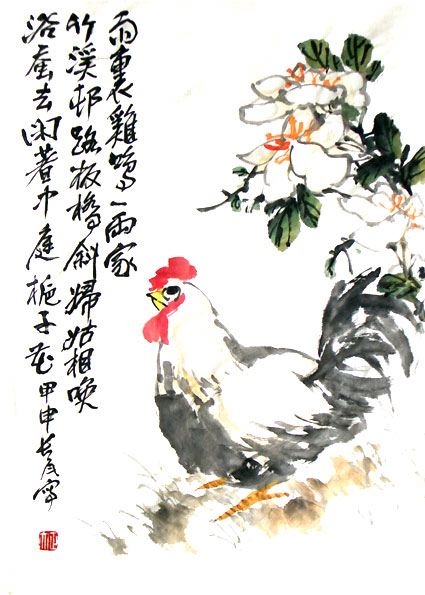 雨裏雞鳴一兩家
竹溪邨路板橋斜婦姑相喚
浴蚕去闲著中庭栀子花甲申